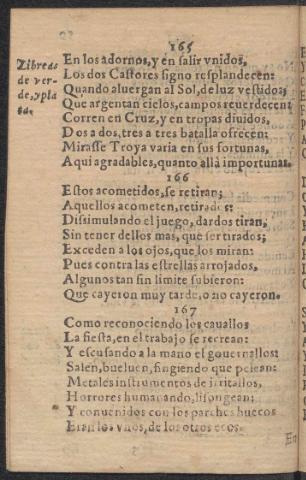 165
Libreas
de ver-
de, y pla
ta.
En los adornos, y en salir vnidos,
Los dos Castores signo resplandecen:
Quando aluergan al Sol, de luz vestidos;
Que argentan cielos, campos reuerdecen:
Corren en Cruz, y en tropas diuidos,
Dos a dos, tres a tres batalla ofrecen:
Mirasse Troya varia en sus fortunas,
Aqui agradables, quanto allà importunas.
166
Estos acometidos, se retiran;
Aquellos acometen, retirados:
Dissimulando el juego, dardos tiran,
Sin tener dellos mas, que ser tirados;
Exceden a los ojos, que los miran:
Pues contra las estrellas arrojados,
Algunos tan sin limite subieron:
Que cayeron muy tarde, o no cayeron.
167
Como reconociendo los cauallos
La fiesta, en el trabajo se recrean:
Y escusando a la mano el gouernallos:
Salen, bueluen, fingiendo que pelean:
Metales instrumentos de irritallos,
Horrores humanando, lisongean:
Y conuenidos con los parches huecos
Eran los vnos, de los otros ecos.
En